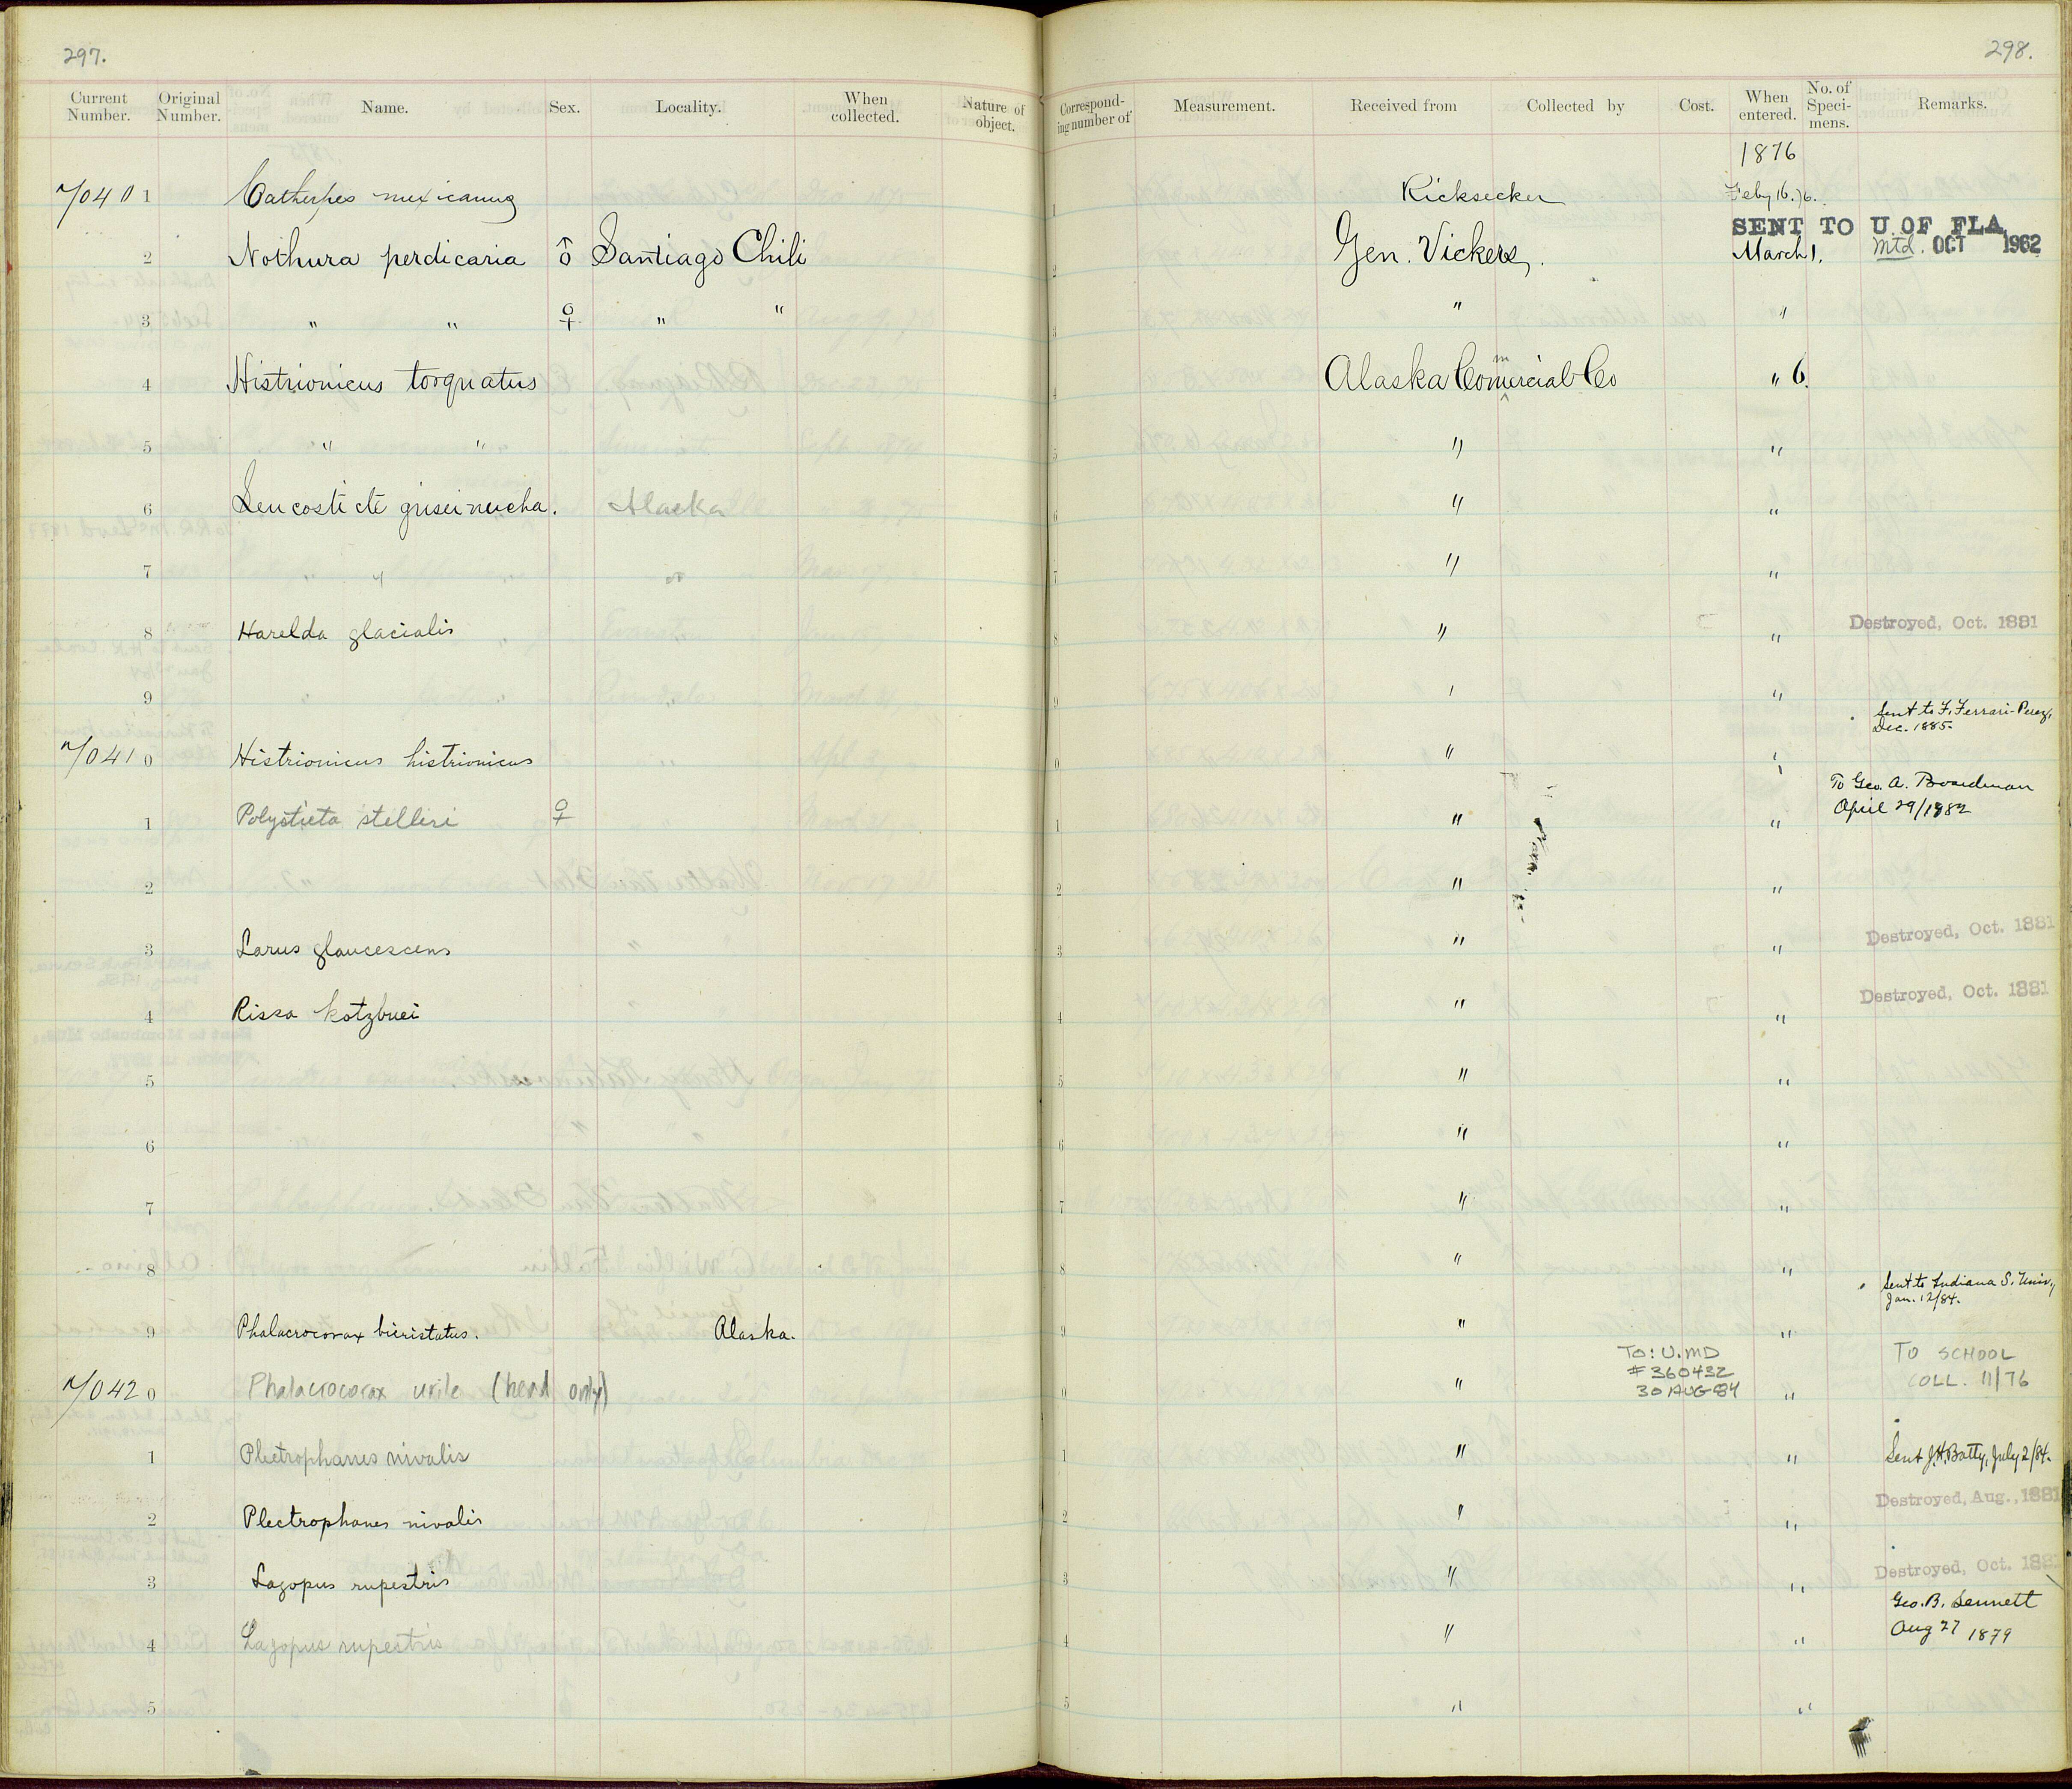 297.
298.
Current Number. Original Number. Name. Sex. Locality. When collected. Nature of object. Corresponding number of Measurement. Received from Collected by Cost. When entered. No. of Specimens. Remarks.
1876
70401 Catherpes mexicanus 1 Ricksecker Feby 16. 76.
SENT TO U. OF FLA
2 Nothura perdicaria ♂ Santiago Chili 2 Gen. Vickers. March 1. Mtd. OCT 1962
3 " " ♀ " " 3 " "
4 Histrionicus torquatus 4 Alaska Commercial Co " 6.
5 " " 5 " "
6 Leucosticte griseinucha. Alaska 6 " "
7 " " " 7 " "
8 Harelda glacialis 8 " " Destroyed, Oct. 1881
9 9 " "
Sent to F. Ferrari-Perez, Dec. 1885.
70410 Histrionicus histrionicus 0 " "
To Geo. A. Boardman
1 Polysticta stelleri ♀ 1 " " April 29/1882
2 2 " "
3 Larus glaucescens 3 " " Destroyed, Oct. 1881
4 Rissa kotzbuei 4 " " Destroyed, Oct. 1881
5 5 " "
6 6 " "
7 7 " "
8 8 " "
Sent to Indiana S. Univ., Jan. 12/84.
9 Phalacrocorax bicristatus. Alaska. 9 " "
70420 Phalacrocorax urile (head only) 0 " TO: U. MD # 360432 30 AUG 84 " TO SCHOOL COLL. 11/76
1 Plectrophanes nivalis 1 " " Sent J.H. Batty, July 2/84.
2 Plectrophanes nivalis 2 " " Destroyed, Aug., 1881
3 Lagopus rupestris 3 " " Destroyed, Oct. 1881
4 Lagopus rupestris 4 " " Geo. B. Sennett Aug 27 1879
5 5 " "